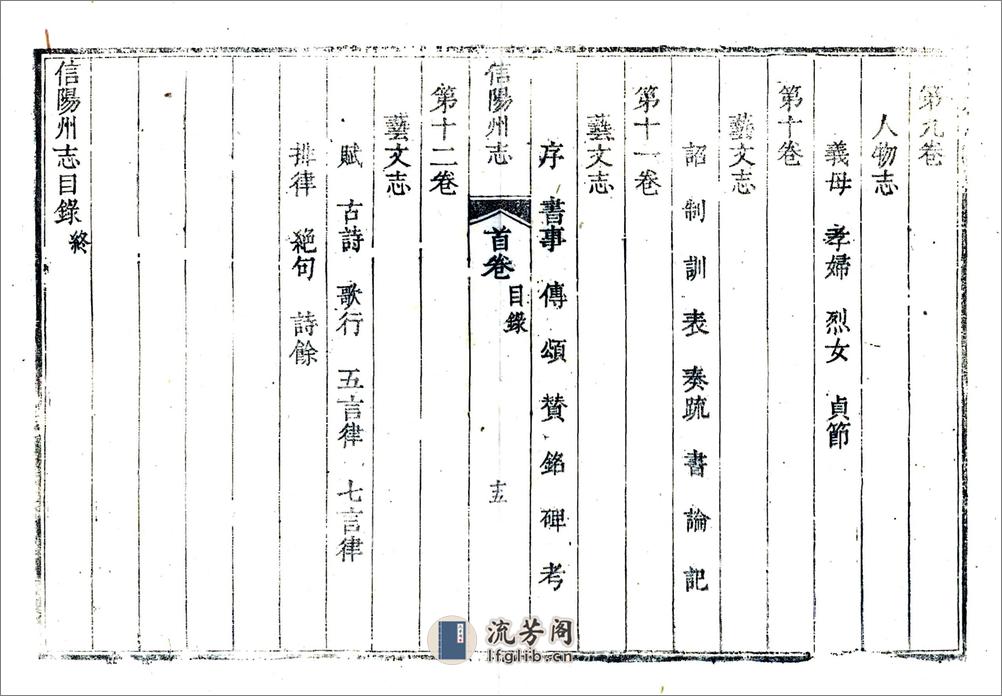 第九卷
人物志
義母 孝婦 烈女 貞節
第十卷
藝文志
詔 制 訓 表 奏疏 書 論 記
第十一卷
藝文志
序 書事 傳 頌 賛 銘 碑 考
信陽州志 首卷 目錄 十五
第十二卷
藝文志
賦 古詩 歌行 五言律 七言律
排律 絕句 詩餘
信陽州志目錄終
流芳阁
lfglib.cn